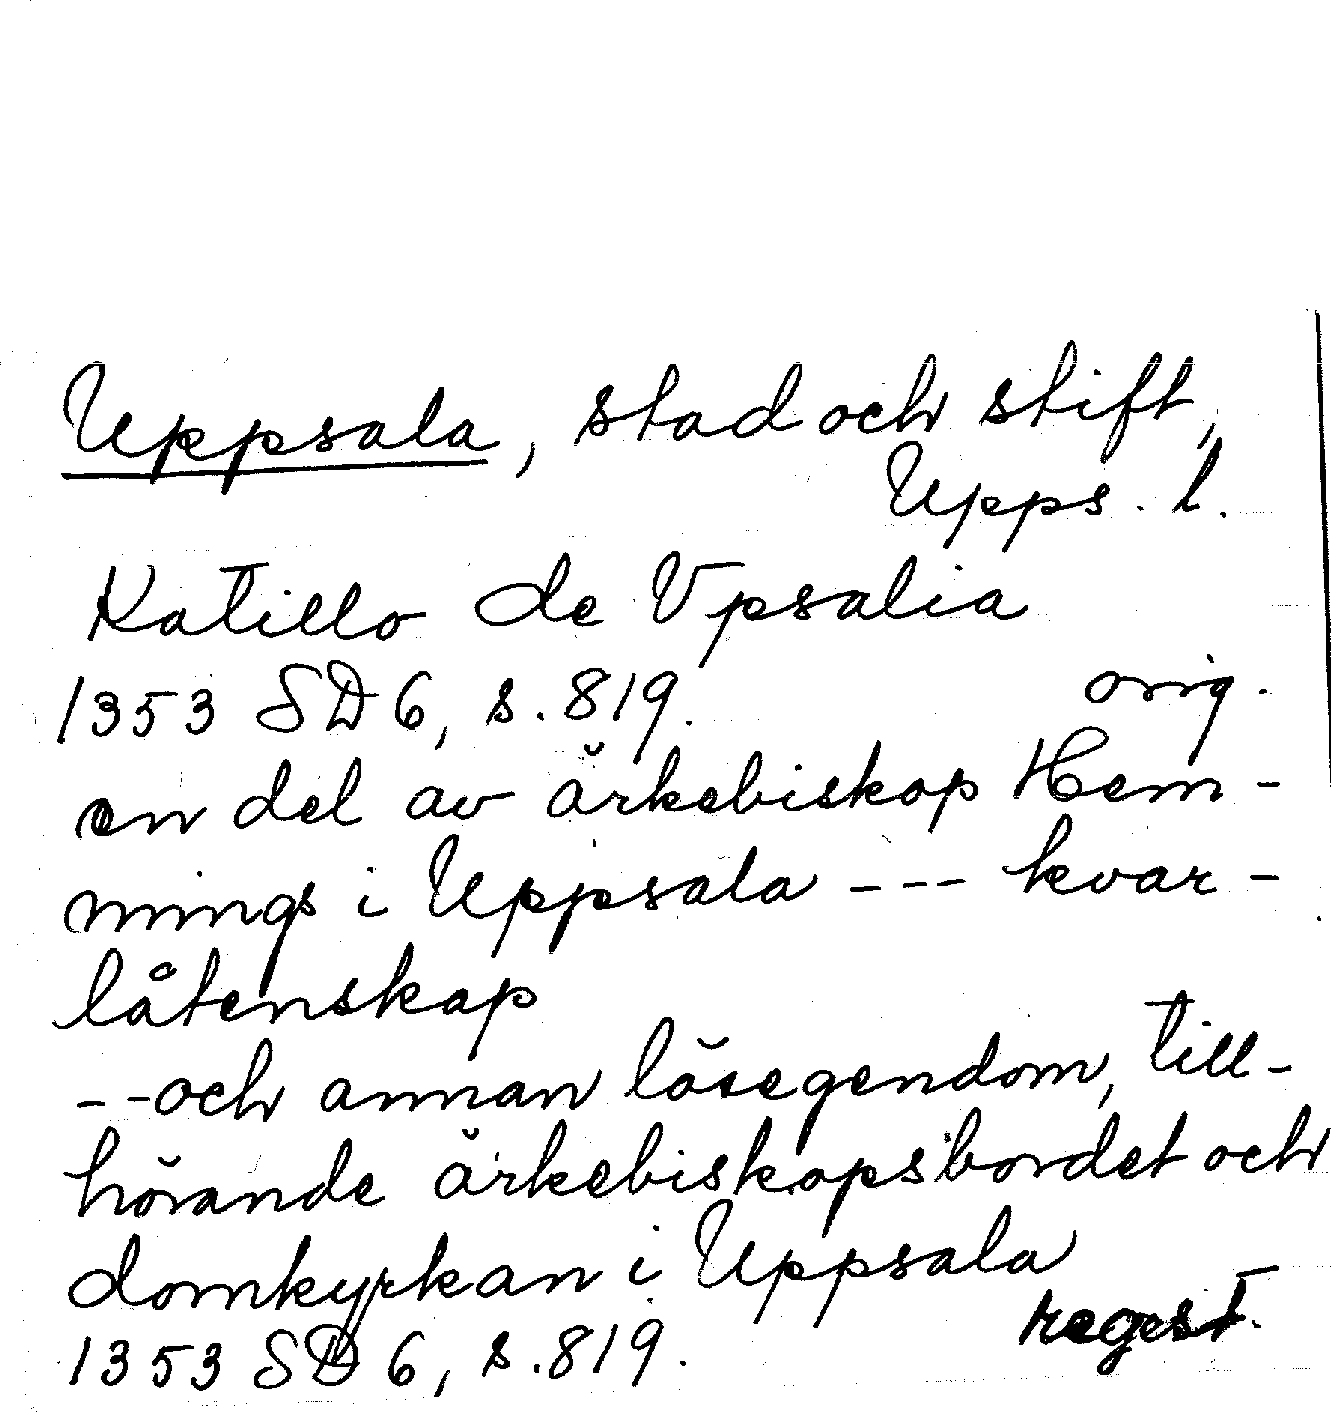 Uppsala, stad och stift,
Upps. l.
Katillo de Vpsalia
1353 SD 6, s. 819. orig.
en del av ärkebiskop Hem-
mings i Uppsala --- kvar-
låtenskap
-- och annan lösegendom, till-
hörande ärkebiskopsbordet och
domkyrkan i Uppsala
1353 SD 6, s. 819. regest.